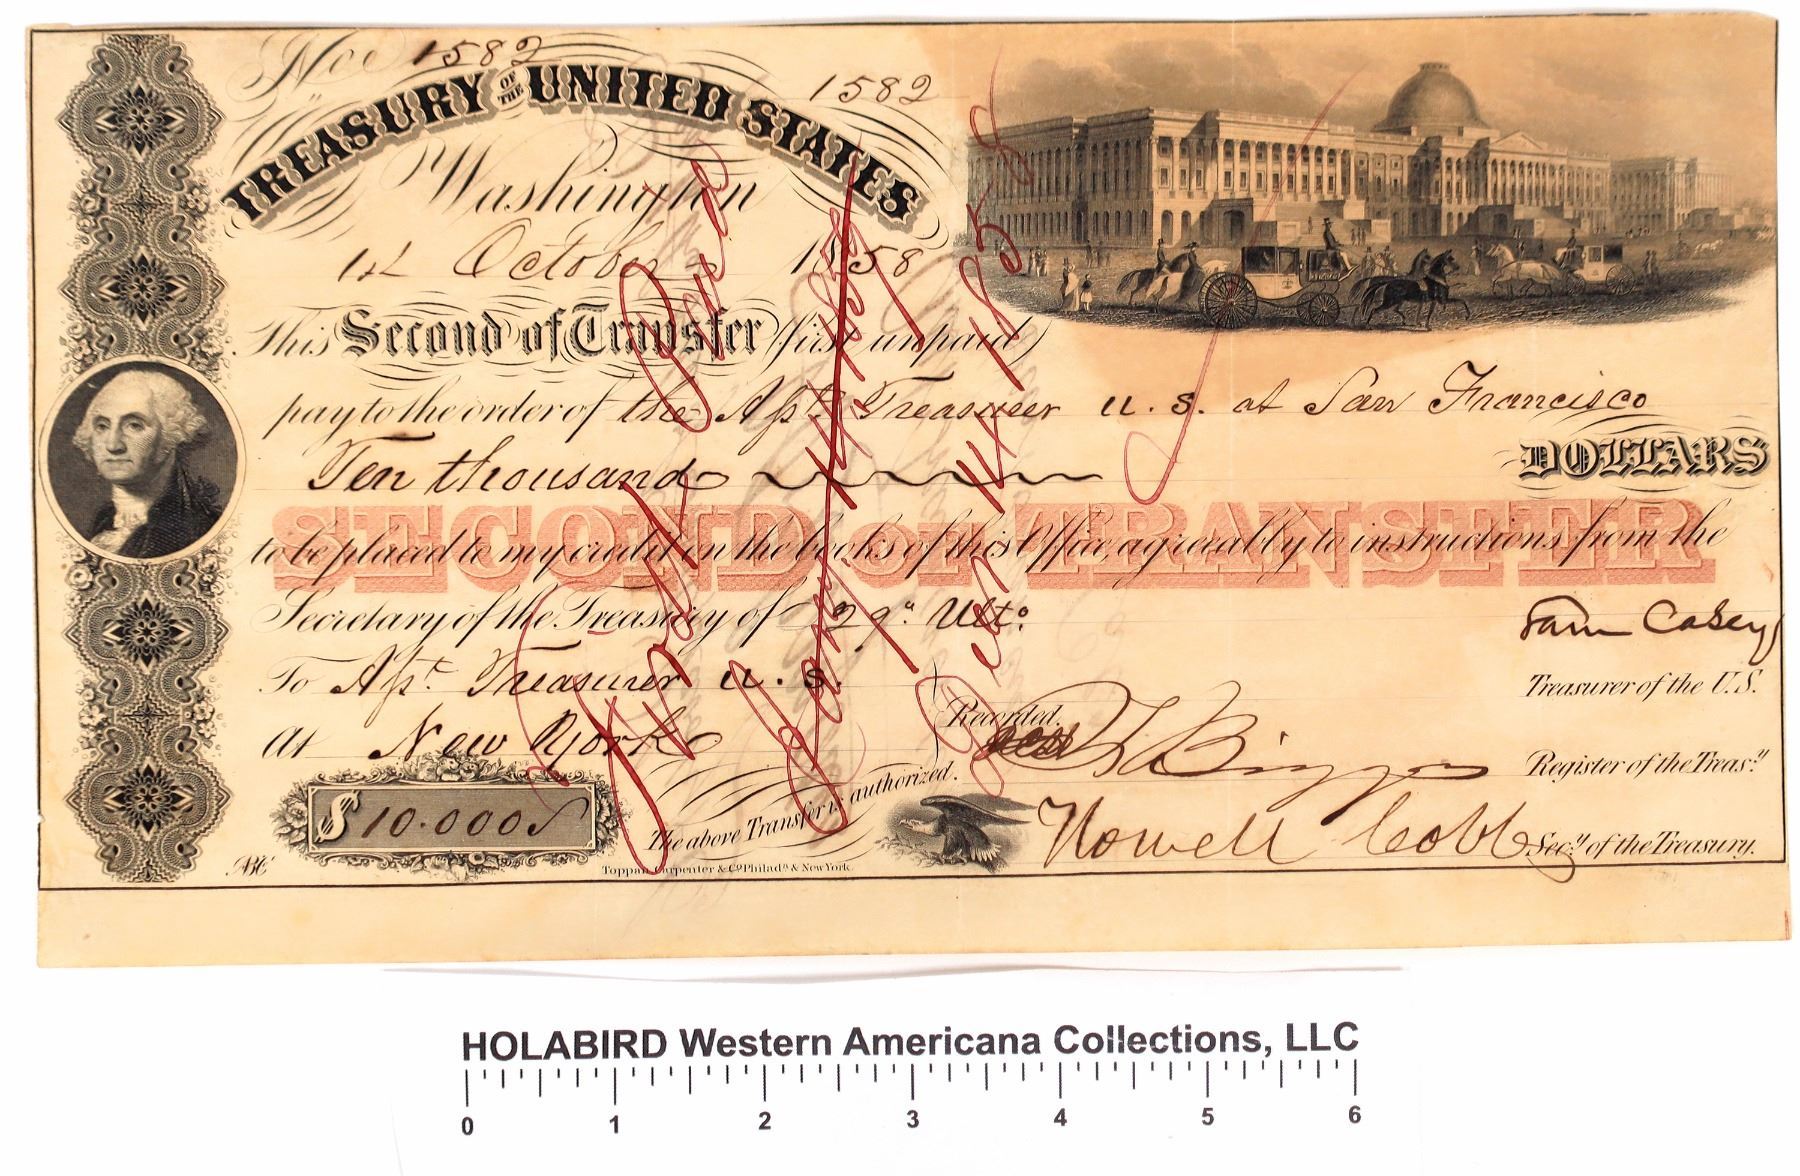 No. 1582
1582
TREASURY OF THE UNITED STATES
Washington
1st October 1858
This Second of Transfer (first unpaid)
pay to the order of the Asst. Treasurer U.S. at San Francisco
Ten thousand DOLLARS
SECOND OF TRANSFER
to be placed to my credit on the books of this Office, agreeably to instructions from the
Secretary of the Treasury of 29" Ulto.
Sam Casey
To Asst. Treasurer U.S.
Treasurer of the U.S.
At New York
Recorded.
Register of the Treasy.
$10.000
The above Transfer is authorized.
Howell Cobb Secy. of the Treasury.
Toppan Carpenter & Co. Philada. & New York.
1858
HOLABIRD Western Americana Collections, LLC
0 1 2 3 4 5 6